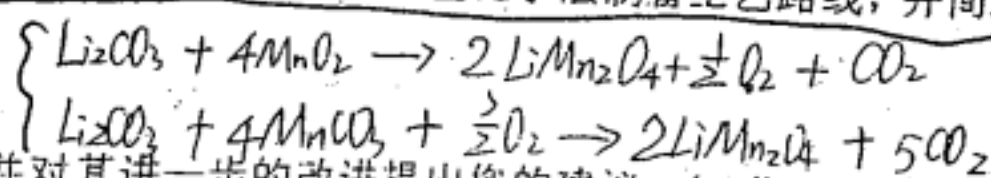 路线，并简
Li₂CO₃ + 4MnO₂ → 2LiMn₂O₄ + ½O₂ + CO₂
Li₂CO₃ + 4MnCO₃ + 3/2 O₂ → 2LiMn₂O₄ + 5CO₂
并对其进一步的改进提出您的建议